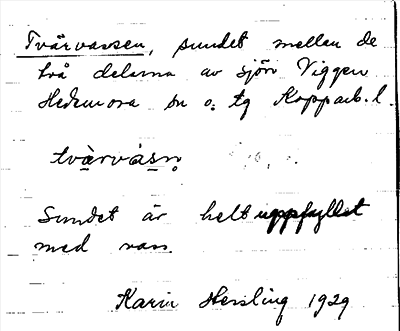 Tvärvassen, sundet mellan de
två delarna av sjön Viggen
Hedemora sn o. tg Kopparb. l.
tvä̀rvàsn̥
Sundet är helt uppfyllt
med vass
Karin Hessling 1929